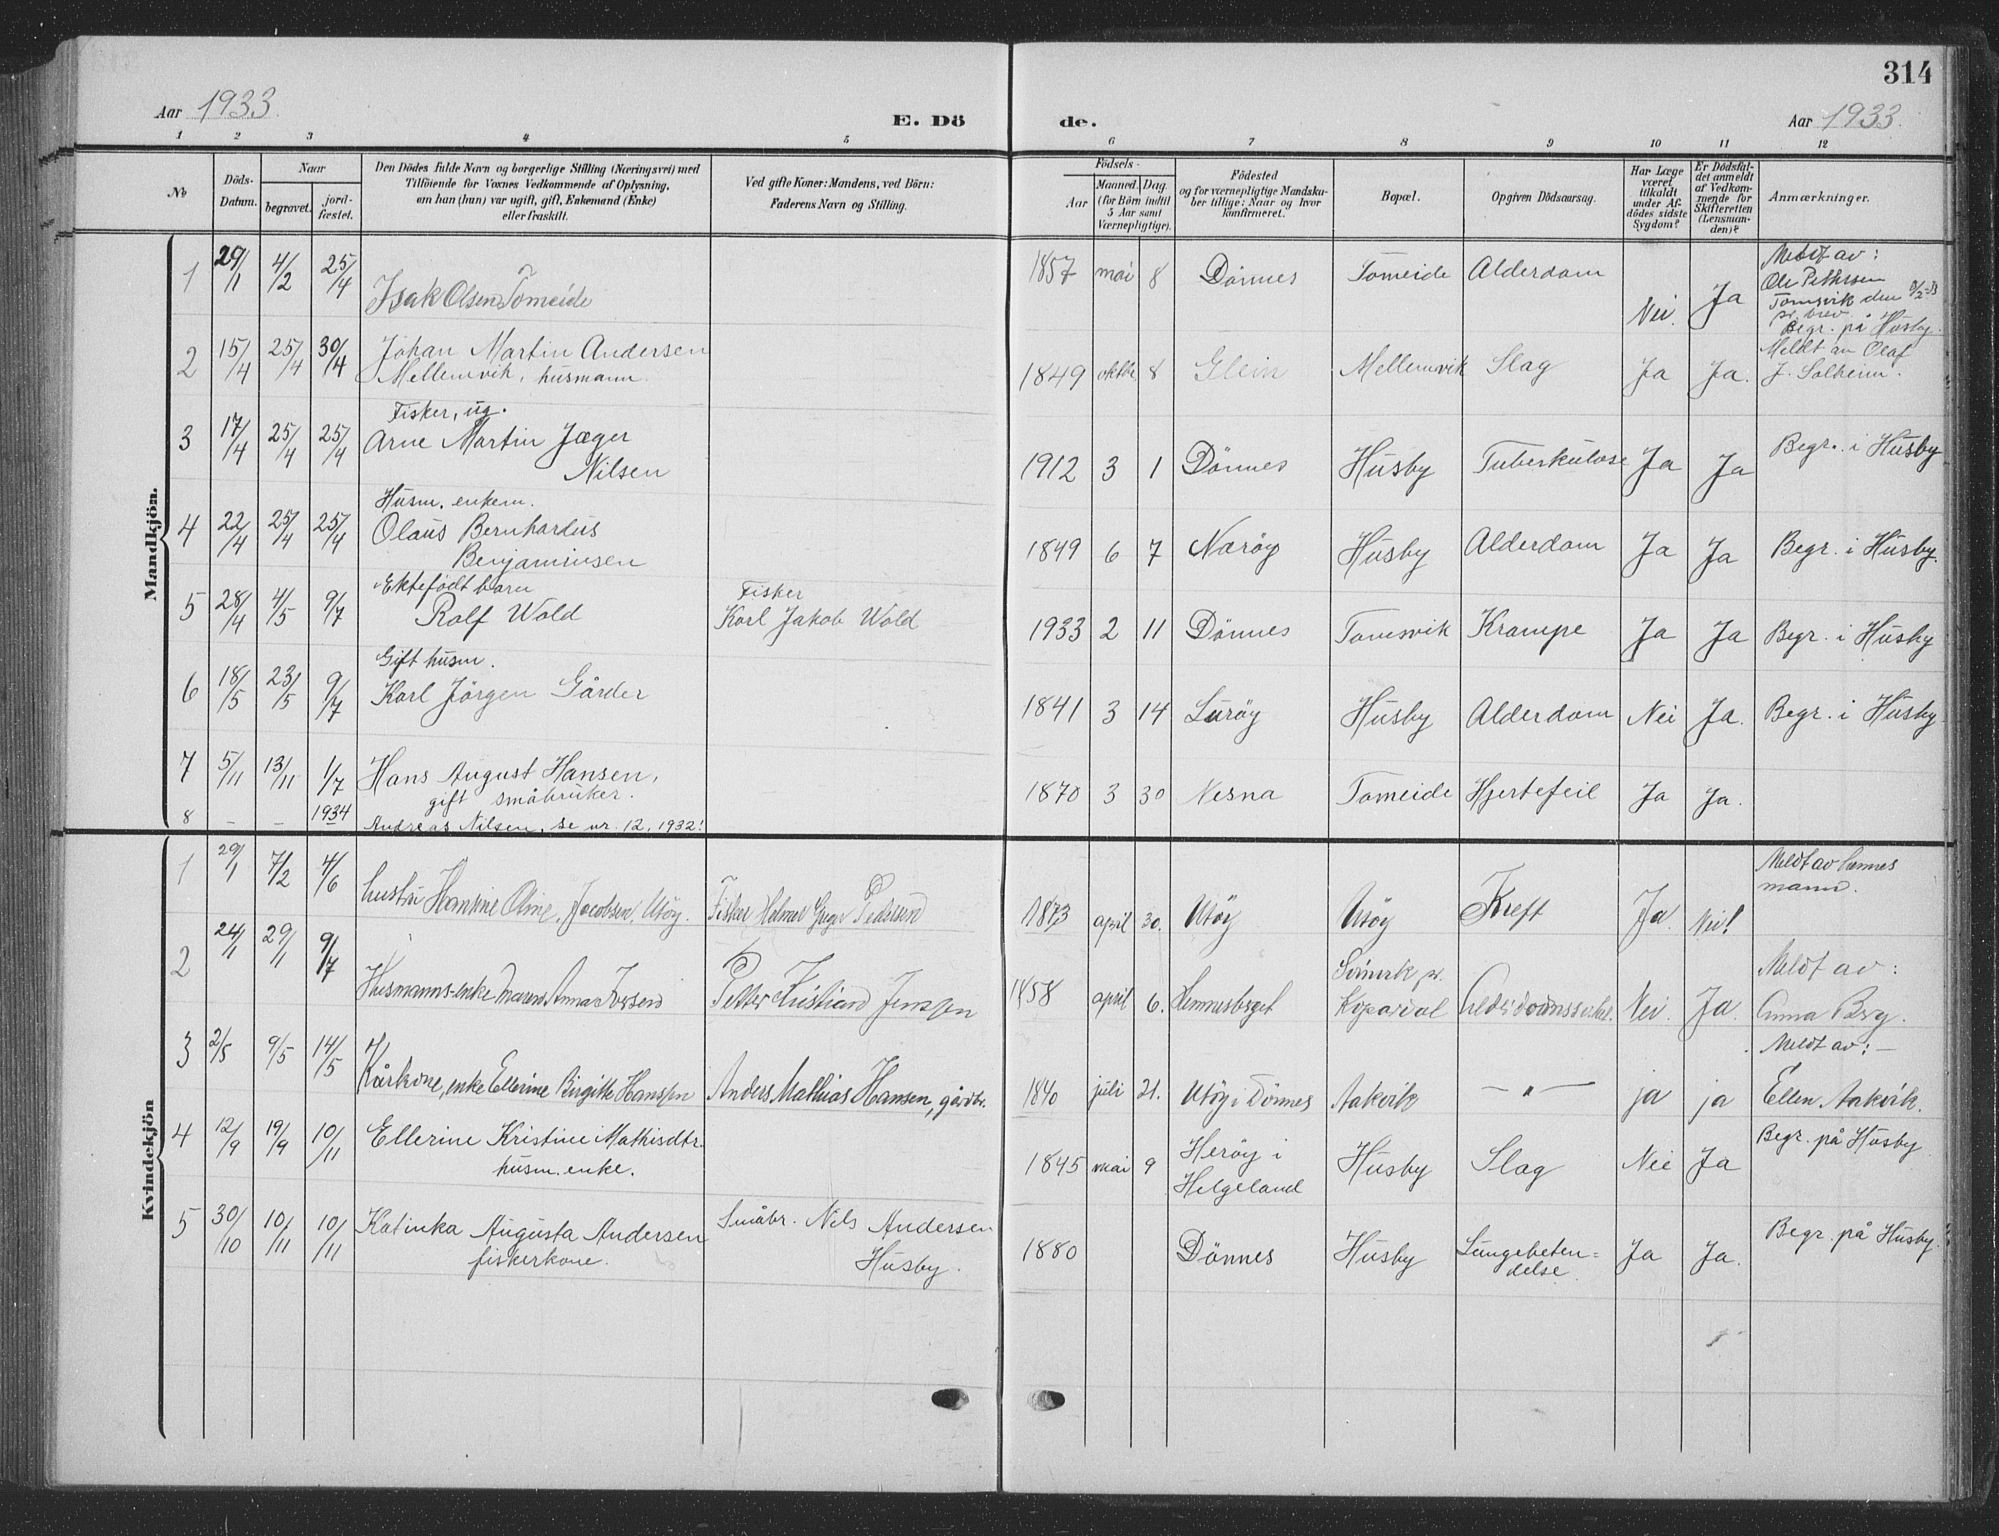 314
Aar 1933
E. Dö
de.
Aar 1933.
1 2 3 4 5 6 7 8 9 10 11 12
No
Döds-
Datum.
Naar
begravet.
jord-
fæstet.
Den Dödes fulde Navn og borgerlige Stilling (Næringsvei) med
Tilföiende for Voxnes Vedkommende af Oplysning,
om han (hun) var ugift, gift, Enkemand (Enke)
eller fraskilt.
Ved gifte Koner: Mandens, ved Börn:
Faderens Navn og Stilling.
Födsels-
Aar
Maaned. Dag.
(for Börn indtil
5 Aar samt
Værnepligtige).
Födested
og for værnepligtige Mandsku-
ber tillige: Naar og hvor
konfirmeret.
Bopæl.
Opgiven Dödsaarsag.
Har Læge
været
tilkaldt
under Af-
dödes sidste
Sygdom?
Er Dödsfal-
det anmeldt
af Vedkom-
mende for
Skifteretten
(Lensman-
den)?
Anmærkninger.
Mandkjön.
1 29/1 4/2 25/4 Isak Olsen Tomeide
1857 mai 8 Dönnes Tomeide Alderdom Nei. Ja
Meldt av:
Ole Pettersen
Tomsvik den
pr. brev
Begr. på Husby.
2 15/4 25/4 30/4 Johan Martin Andersen
Mellemvik, husmann.
1849 oktbr 8 Glein Mellemvik Slag Ja Ja.
Meldt av Olaf
J. Solheim.
Fisker, ug.
3 17/4 25/4 25/4 Arne Martin Jæger
Nilsen
1912 3 1 Dönnes Husby Tuberkulose Ja Ja Begr. i Husby
Husm. enkem.
4 22/4 25/4 25/4 Olaus Bernhardus
Benjaminsen
1849 6 7 Nærøy Husby Alderdom Ja Ja Begr. i Husby.
Ektefödt barn
5 28/4 4/5 9/7 Rolf Wold
Fisker
Karl Jakob Wold
1933 2 11 Dönnes Tomsvik Krampe Ja Ja Begr. i Husby
Gift husm.
6 18/5 23/5 9/7 Karl Jörgen Gårder
1841 3 14 Luröy Husby Alderdom Nei Ja. Begr. i Husby
7 5/11 13/11 1/7 1934 Hans August Hansen,
gift småbruker.
1870 3 30 Nesna Tomeide Hjertefeil Ja Ja.
8 – – Andreas Nilsen, se nr. 12, 1932!
Kvindekjön
1 29/1 7/2 4/6 hustru Hansine Oline, Jacobsen, Utöy. Fisker Helmer Pedersen
1873 april 30. Utöy Utöy Kreft Ja. Nei!
Meldt av hennes
mann.
2 24/1 29/1 9/7 Husmanns-enke Maren Anna Iversen Petter Kristian Jenssen
1858 april 6. Hennesberget
Kopardal Nei. Ja.
Meldt av:
Anna Berg.
3 2/5 9/5 14/5 Kårkone, enke Ellerine Birgitte Hanssen Anders Mathias Hansen, gårdbr.
1840 juli 21. Utöy i Dönnes Aakvik — " — ja ja
Meldt av: –
Ellen Aakvik.
4 12/9 19/9 10/11 Ellerine Kristine Mathisdtr.
husm. enke.
1845 mai 9 Heröy i
Helgeland
Husby Slag Nei Ja Begr. på Husby
5 30/10 10/11 10/11 Katinka Augusta Andersen
fiskerkone.
Småbr. Nils Andersen
Husby.
1880 Dönnes Husby Lungebeten=
delse
Ja Ja. Begr. på Husby.